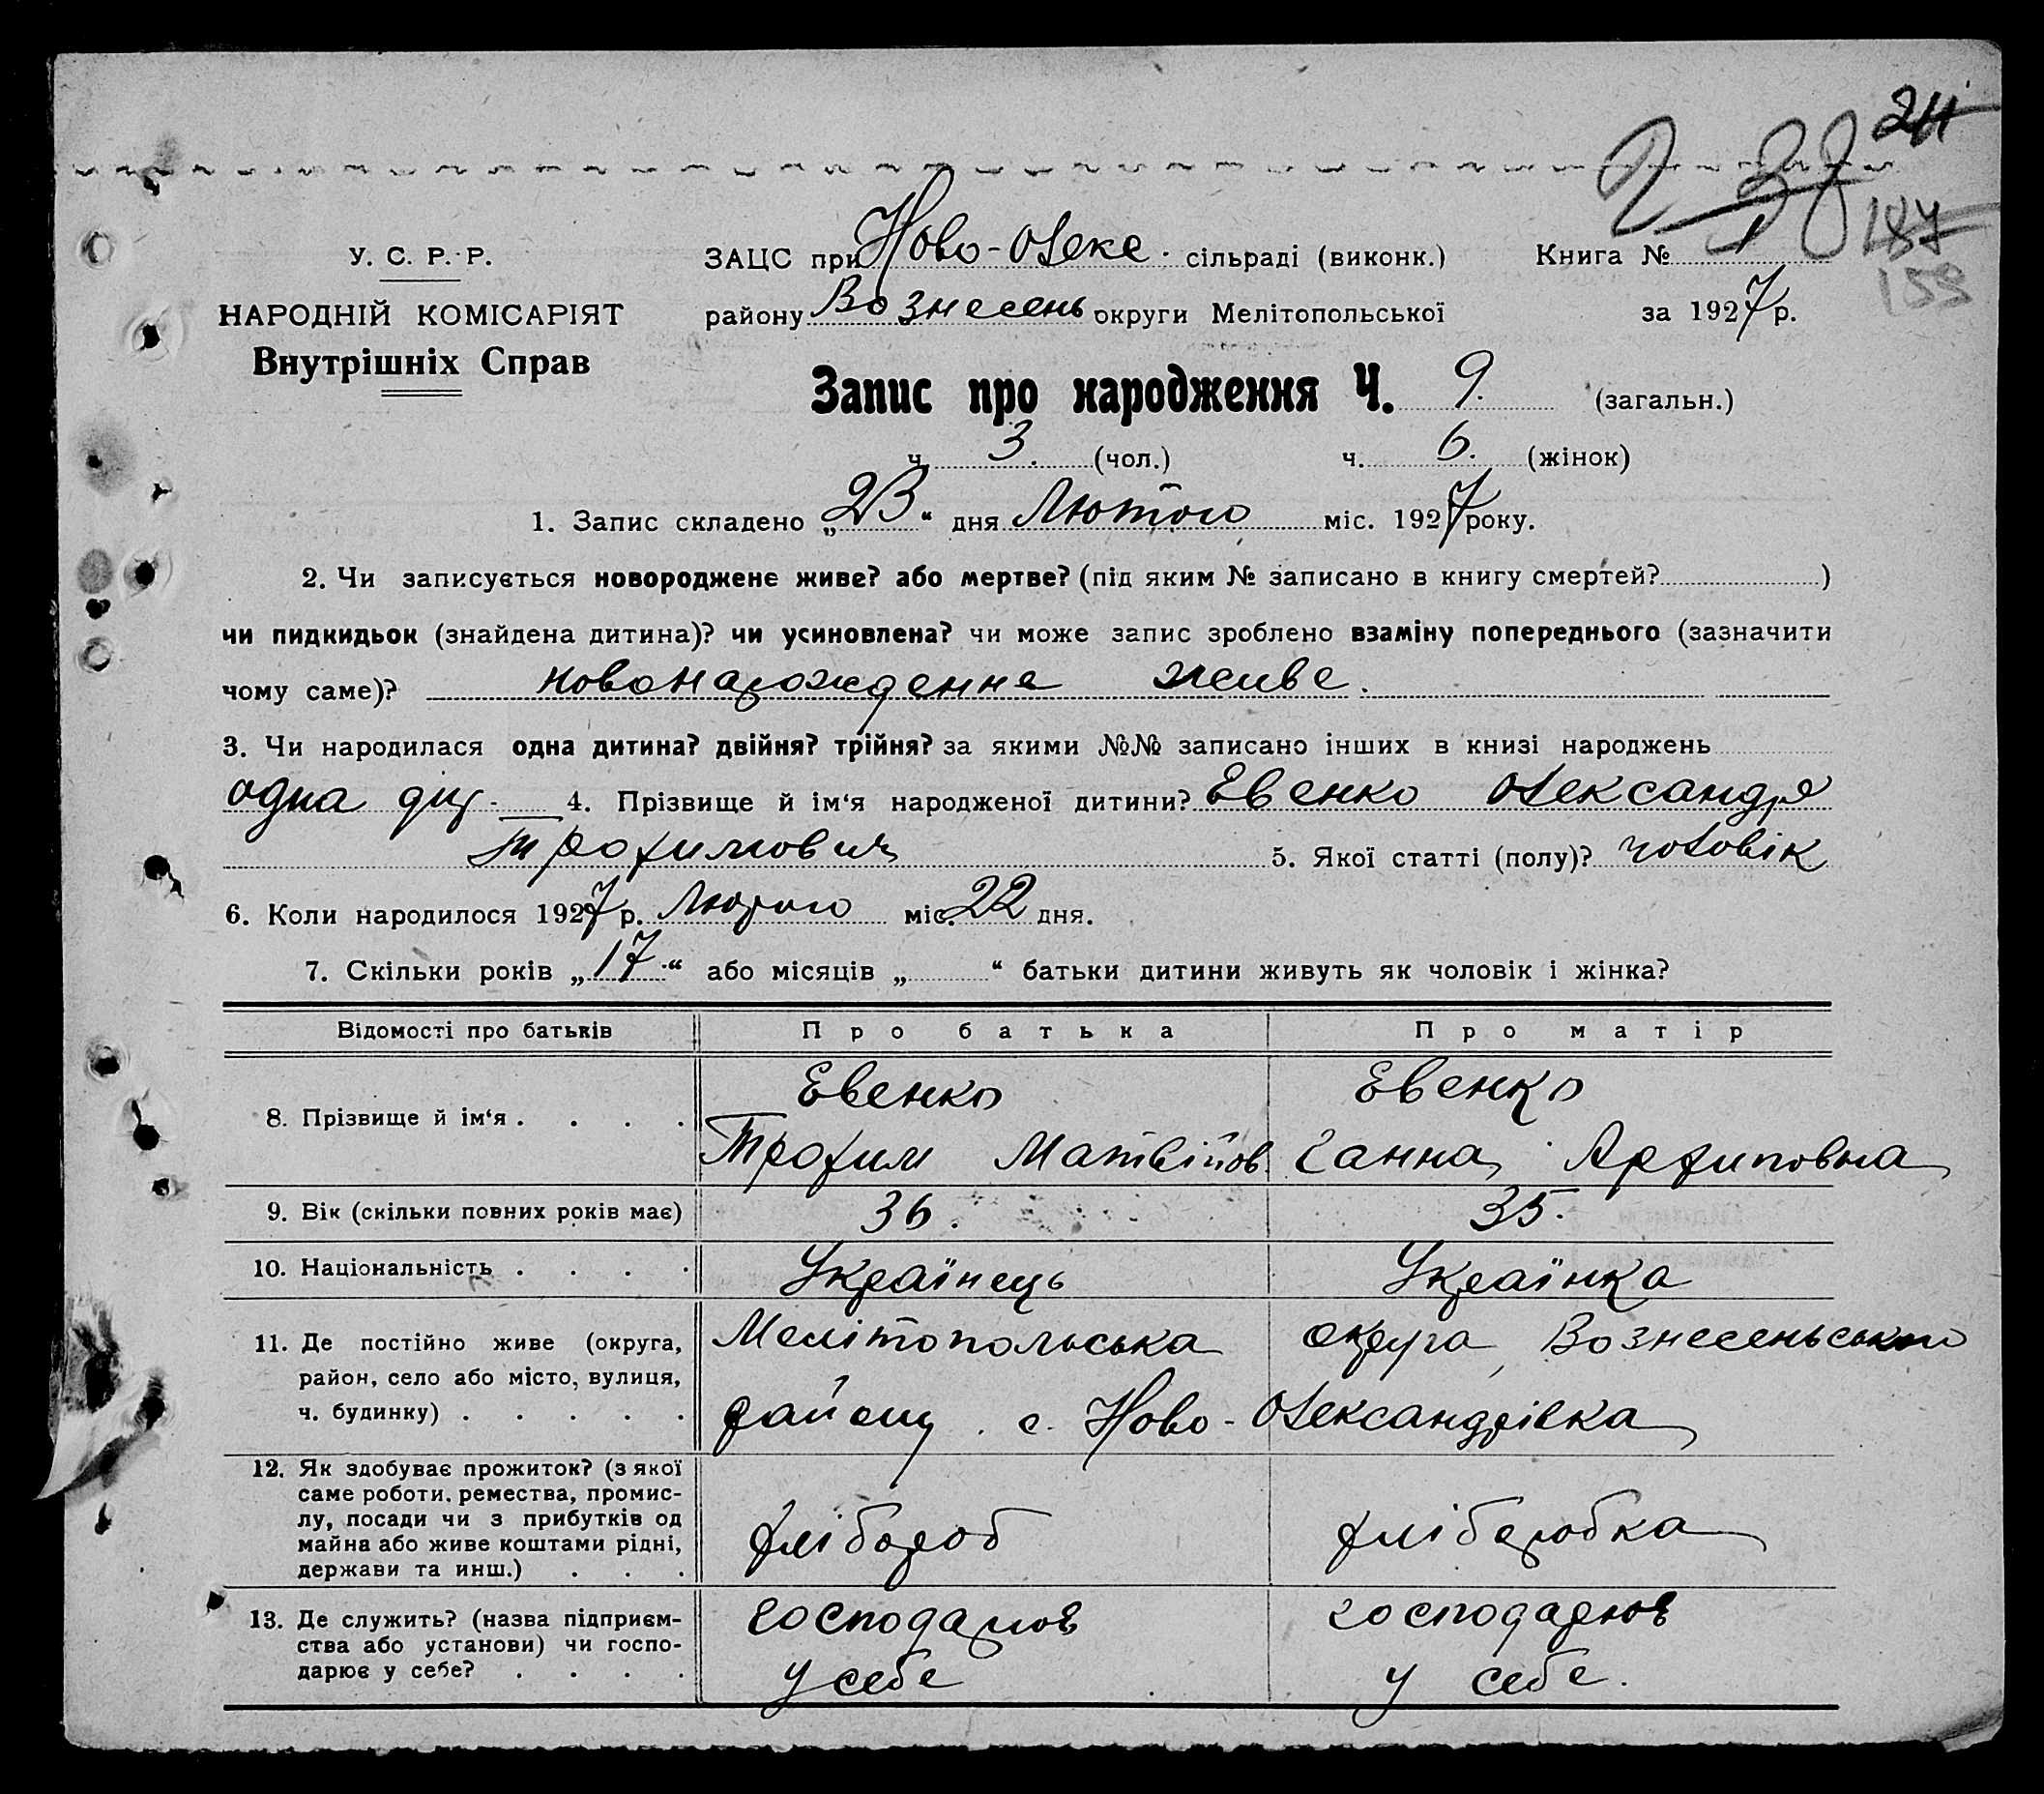 24
2 38
187
159
У. С. Р. Р.
НАРОДНІЙ КОМІСАРІЯТ
Внутрішніх Справ
ЗАЦС при Ново-Олекс. сільраді (виконк.) Книга № 1
району Вознесень округи Мелітопольської за 1927 р.
Запис про народження Ч. 9. (загальн.)
ч. 3. (чол.) ч. 6. (жінок)
1. Запис складено „23“ дня Лютого міс. 1927 року.
2. Чи записується новороджене живе? або мертве? (під яким № записано в книгу смертей? )
чи пидкидьок (знайдена дитина)? чи усиновлена? чи може запис зроблено взаміну попереднього (зазначити
чому саме)? новонарожденне живе.
3. Чи народилася одна дитина? двійня? трійня? за якими №№ записано інших в книзі народжень
одна дит. 4. Прізвище й ім‘я народженої дитини? Евенко Олександр
Трохимович 5. Якої статті (полу)? чоловік
6. Коли народилося 1927 р. Лютого міс. 22 дня.
7. Скільки років „17“ або місяців „ “ батьки дитини живуть як чоловік і жінка?
Відомості про батьків Про батька Про матір
8. Прізвище й ім‘я . . . . Евенко Трохим Матвійов. Евенко Ганна Архиповна
9. Вік (скільки повних років має) 36. 35.
10. Національність . . . . Українець Українка
11. Де постійно живе (округа, Мелітопольська округа, Вознесеньського
район, село або місто, вулиця,
ч. будинку) . . . . . району с. Ново-Олександрівка
12. Як здобуває прожиток? (з якої
саме роботи, ремества, промис-
лу, посади чи з прибутків од
майна або живе коштами рідні, хлібороб хліборобка
держави та инш.) . . .
13. Де служить? (назва підприєм- господарює господарює
ства або установи) чи госпо-
дарює у себе? . . . . у себе у себе.